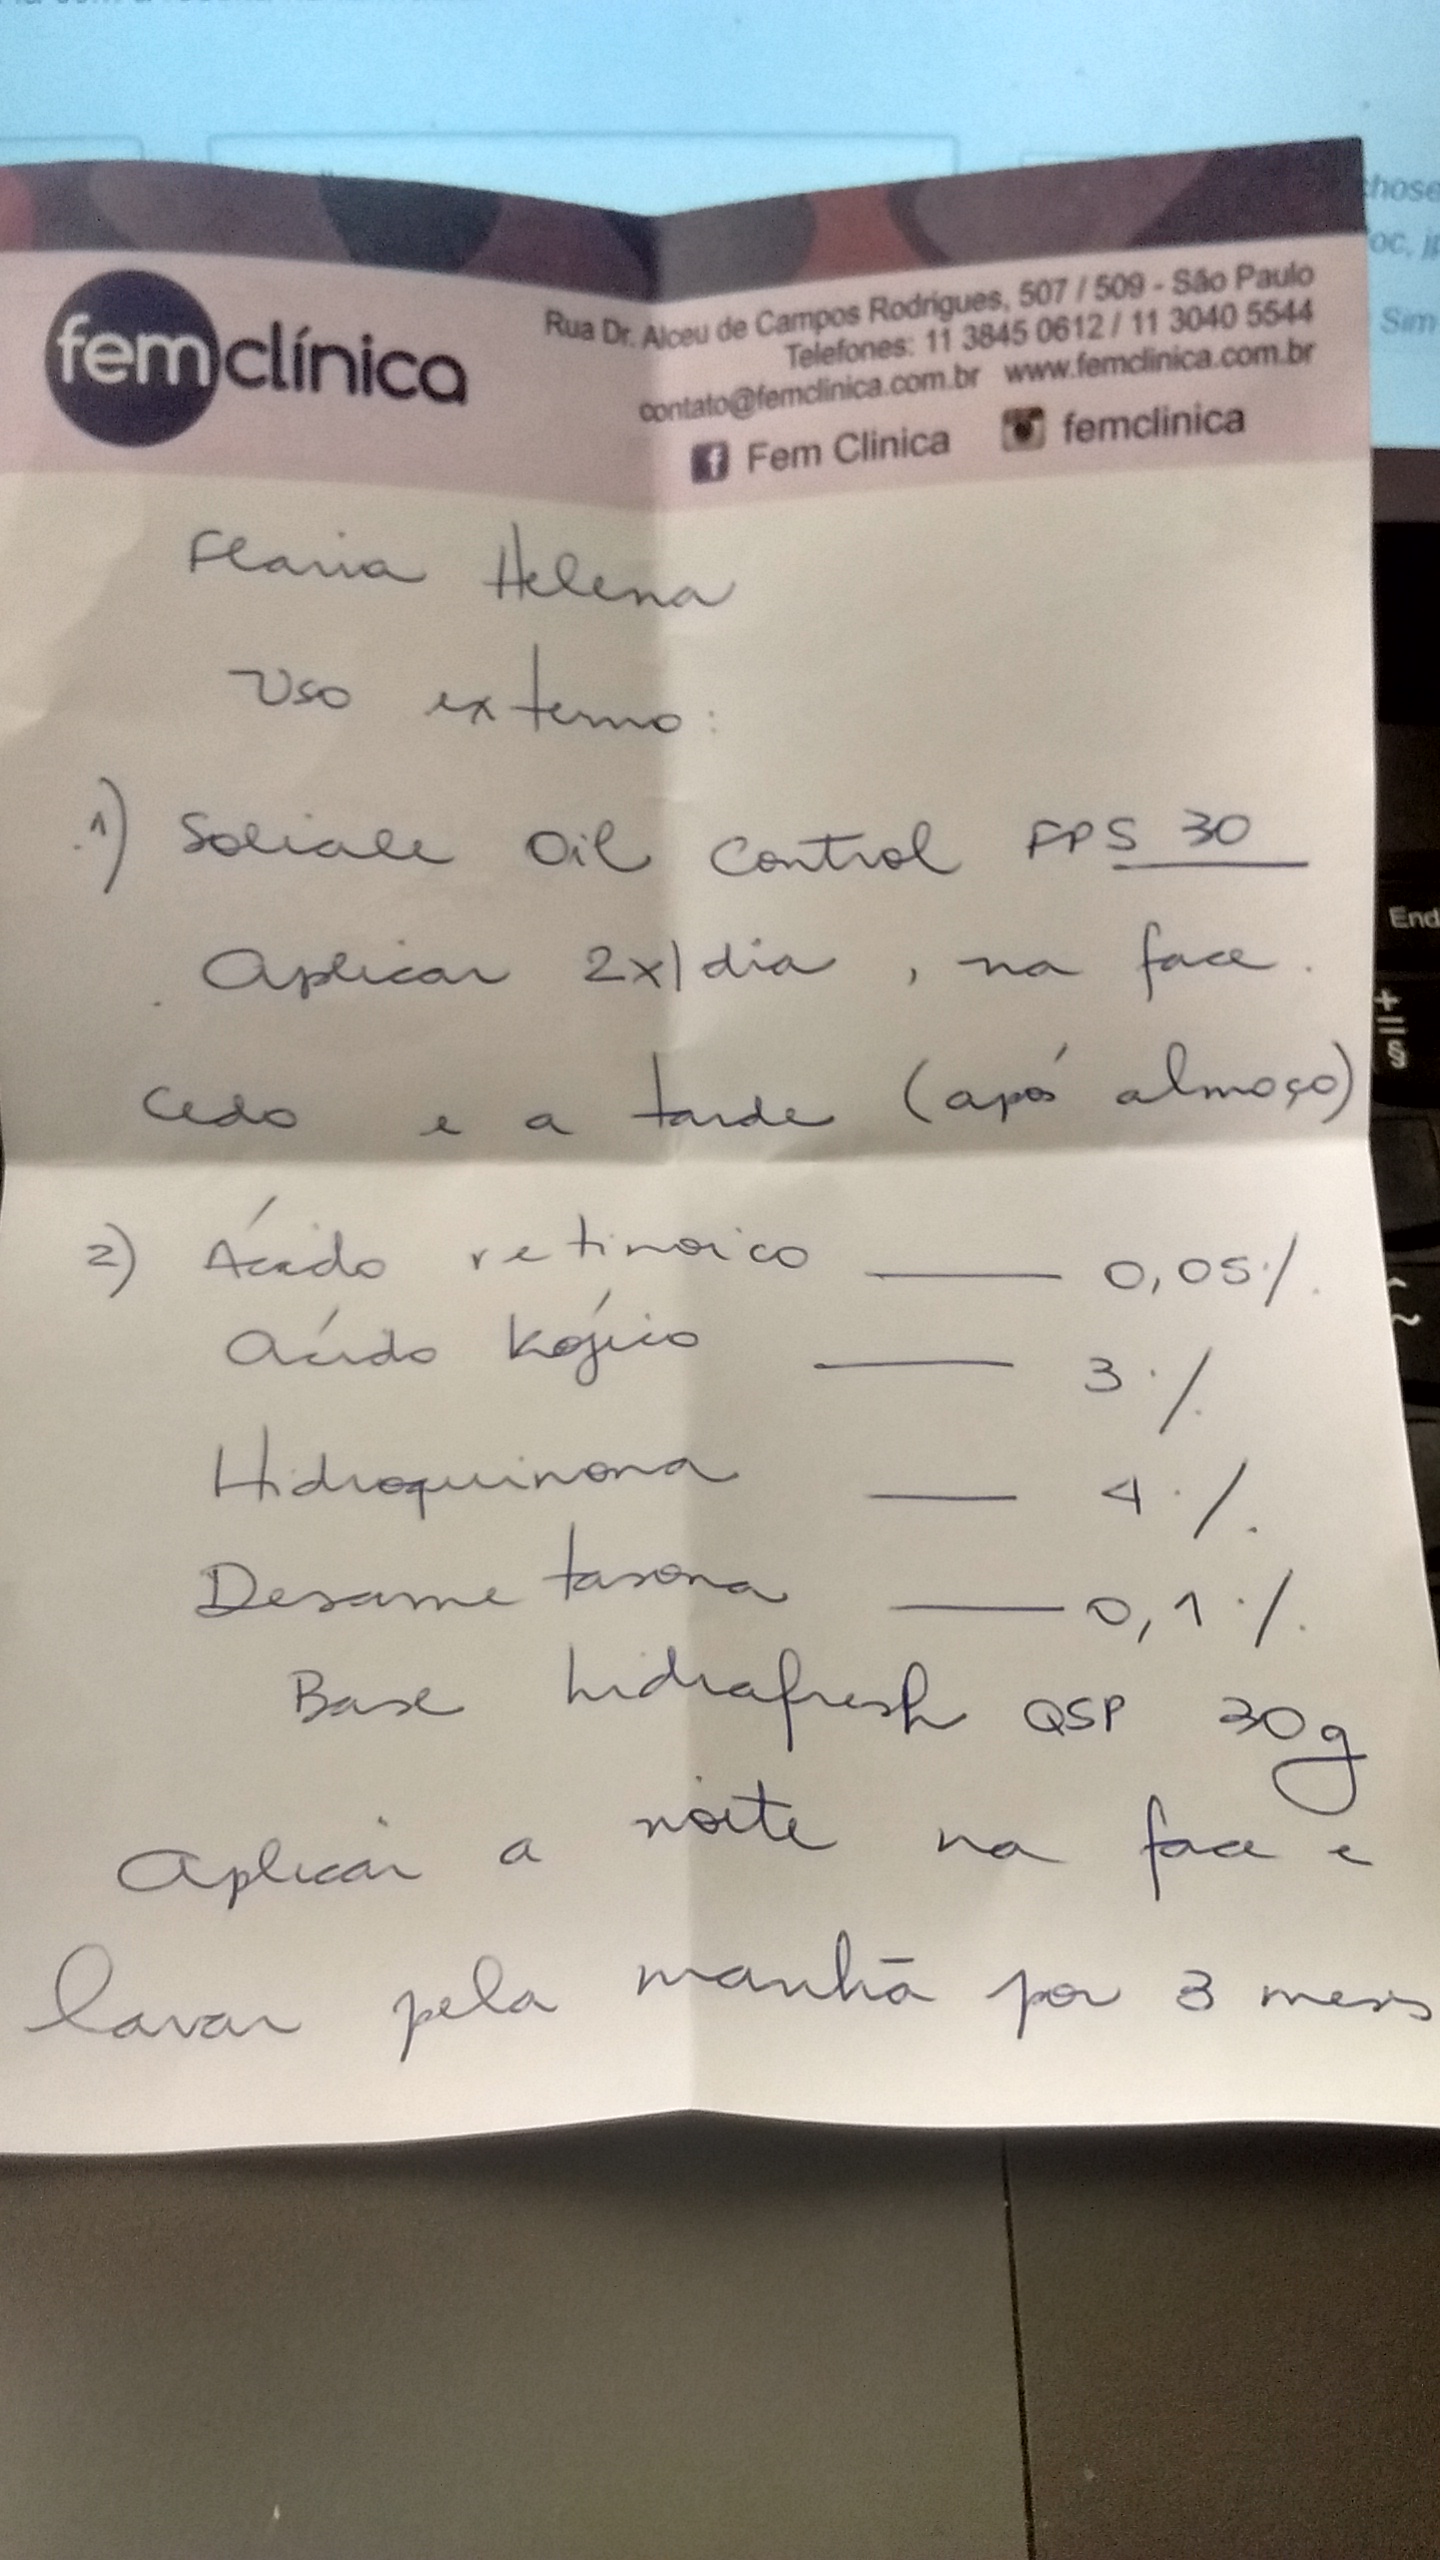 femclínica
Rua Dr. Alceu de Campos Rodrigues, 507 / 509 - São Paulo
Telefones: 11 3845 0612 / 11 3040 5544
contato@femclinica.com.br www.femclinica.com.br
Fem Clinica femclinica
Flavia Helena
Uso externo:
1) Soliale Oil Control FPS 30
Aplicar 2x/dia, na face.
cedo e a tarde (após almoço)
2) Ácido retinoico — 0,05%.
Acído Kójico — 3%.
Hidroquinona — 4%.
Desametasona — 0,1%.
Base hidrafresh QSP 30g
Aplicar a noite na face e
lavar pela manhã por 3 meses
End
+
=
§
^
~
Sim